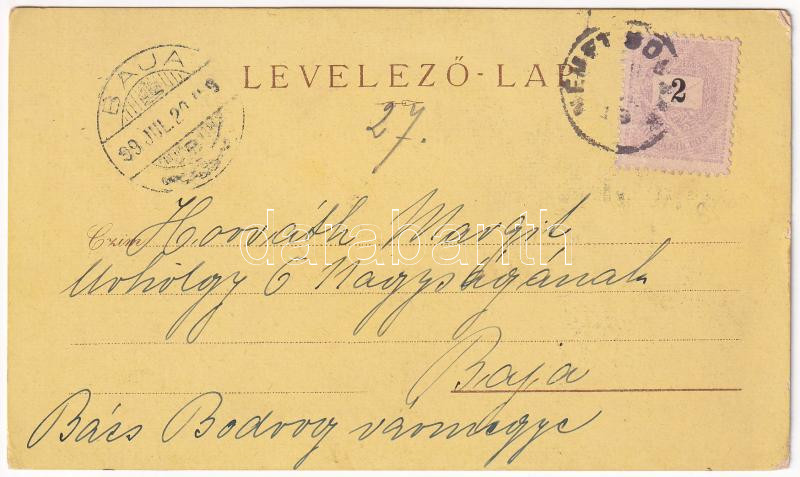 LEVELEZŐ-LAP
BAJA
99 JUL. 20.
2
27.
Czim
Horváth Margit
Urhölgy Ő Nagyságának
Baja
Bács Bodrog vármegye
darabanth